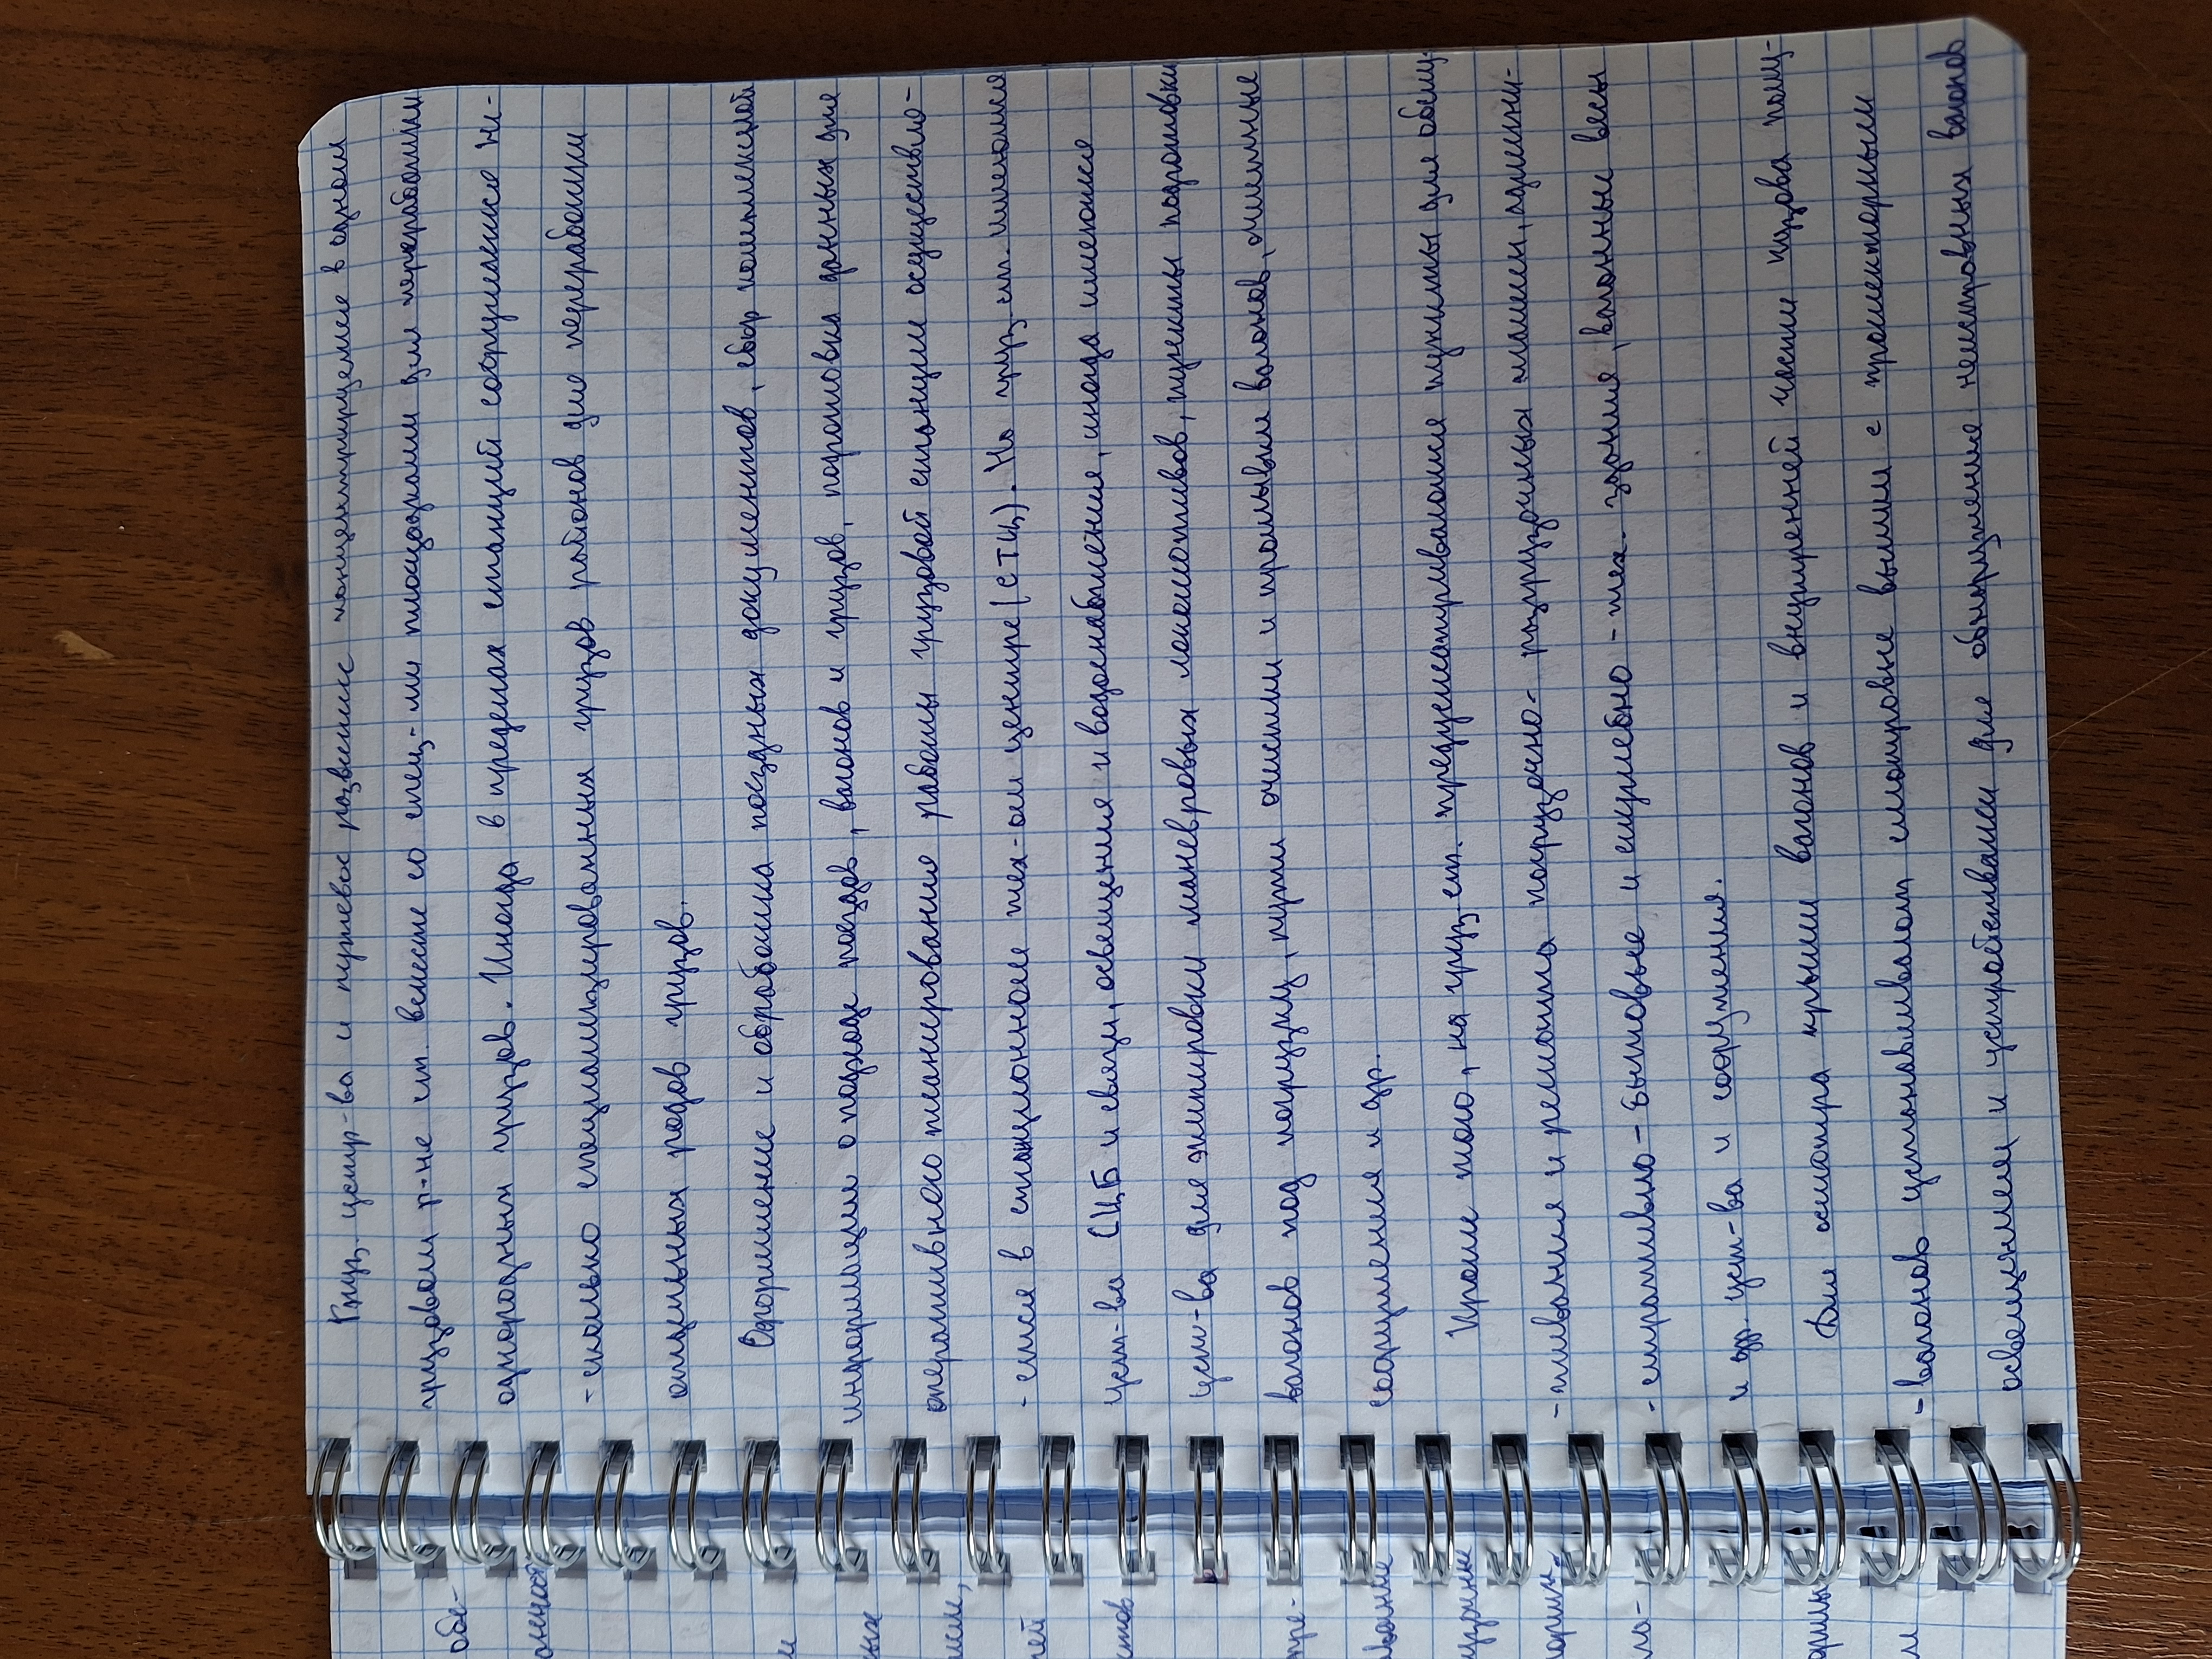 Груз. устр-ва и путевое развитие концентрируемые в одном
грузовом р-не ст. вместе со спец-ми площадками для переработки
однородных грузов. Иногда в пределах станций сооружаются не-
-сколько специализированных грузов районов для переработки
отдельных родов грузов.
Оформление и обработка поездных документов, сбор
информации о подходе поездов, вагонов и грузов, подготовка данных для
оперативного планирования работы грузовой станции осуществля-
-ется в станционном тех-ом центре (СТЦ). На груз. ст. имеются
уст-ва СЦБ и связи, освещения и водоснабжения, иногда имеются
уст-ва для экипировки маневровых локомотивов, пункты подготовки
вагонов под погрузку, пути очистки и промывки вагонов,
сооружения и др.
Кроме того, на груз. ст. предусматриваются пункты для обслу-
-живания и ремонта погрузочно-разгрузочных машин, админи-
-стративно-бытовые и служебно-тех. здания, вагонные весы
и др. уст-ва и сооружения.
Для осмотра крыши вагонов и внутренней части кузова полу-
-вагонов устанавливают смотровые вышки с прожекторным
освещением и устройствами для обнаружения неисправных вагонов
обе-
ных
ей
стов
пре-
вание
ло-